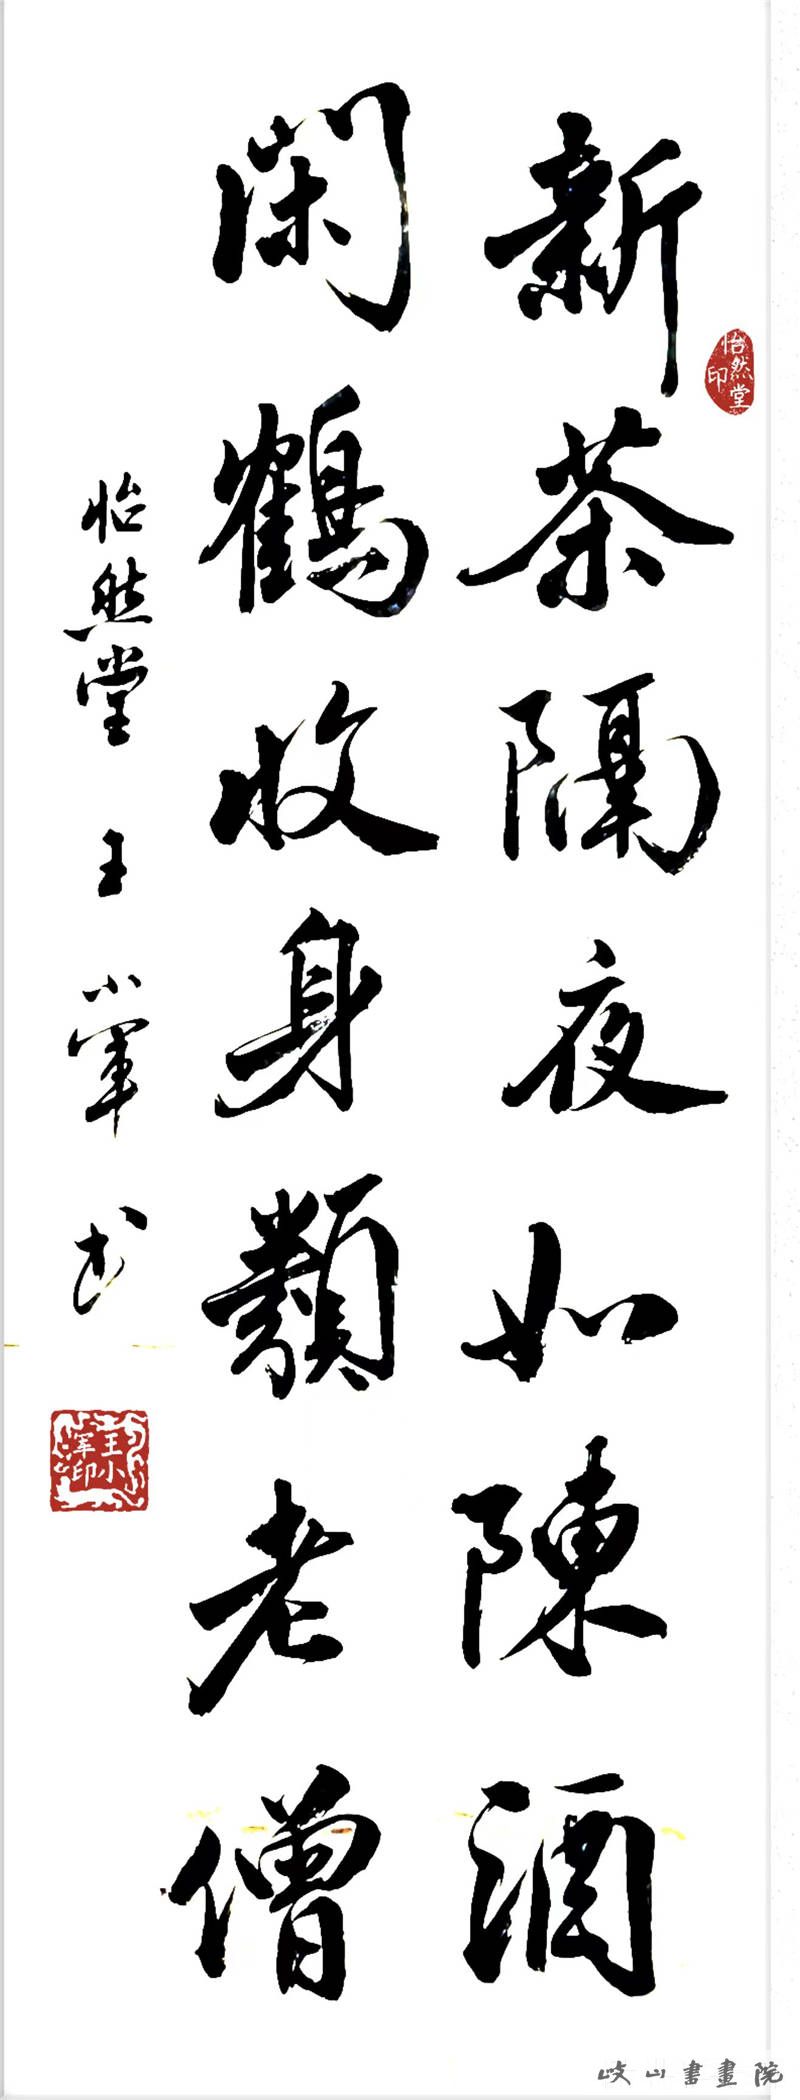 新茶隔夜如陳酒
怡然堂印
閑鶴收身類老僧
怡然堂 王小軍书
王小军印
岐山書畫院